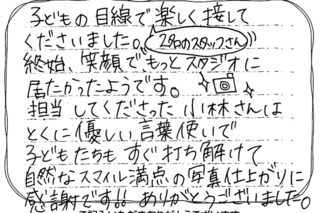 子どもの目線で楽しく接して
くださいました。(2名のスタッフさん)
終始、笑顔でもっとスタジオに
居たかったようです。
担当してくださった小林さんは
とくに優しい言葉使いで
子どもたちもすぐ打ち解けて
自然なスマイル満点の写真仕上がりに
感謝です!! ありがとうございました。